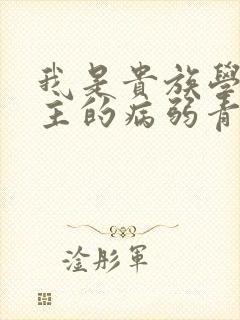 我是貴族學
主的病弱青
淦彤軍